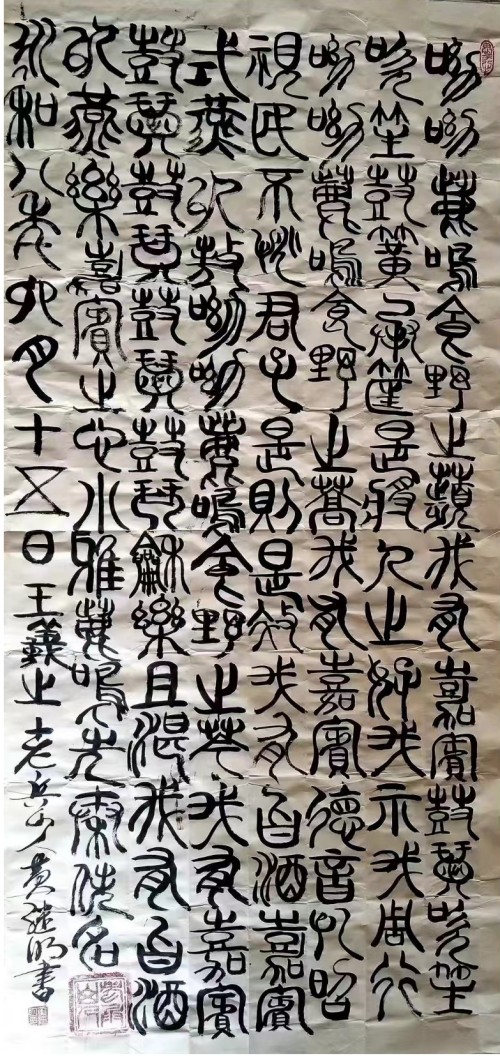 呦呦鹿鳴食野之蘋我有嘉賓鼓瑟吹笙
吹笙鼓簧承筐是將人之好我示我周行
呦呦鹿鳴食野之蒿我有嘉賓德音孔昭
視民不恌君子是則是效我有旨酒嘉賓
式燕以敖呦呦鹿鳴食野之芩我有嘉賓
鼓瑟鼓琴鼓瑟鼓琴龢樂且湛我有旨酒
以燕樂嘉賓之心小雅鹿鳴先秦佚名
永和八年卯月十五日王羲之老兵山人黄明書